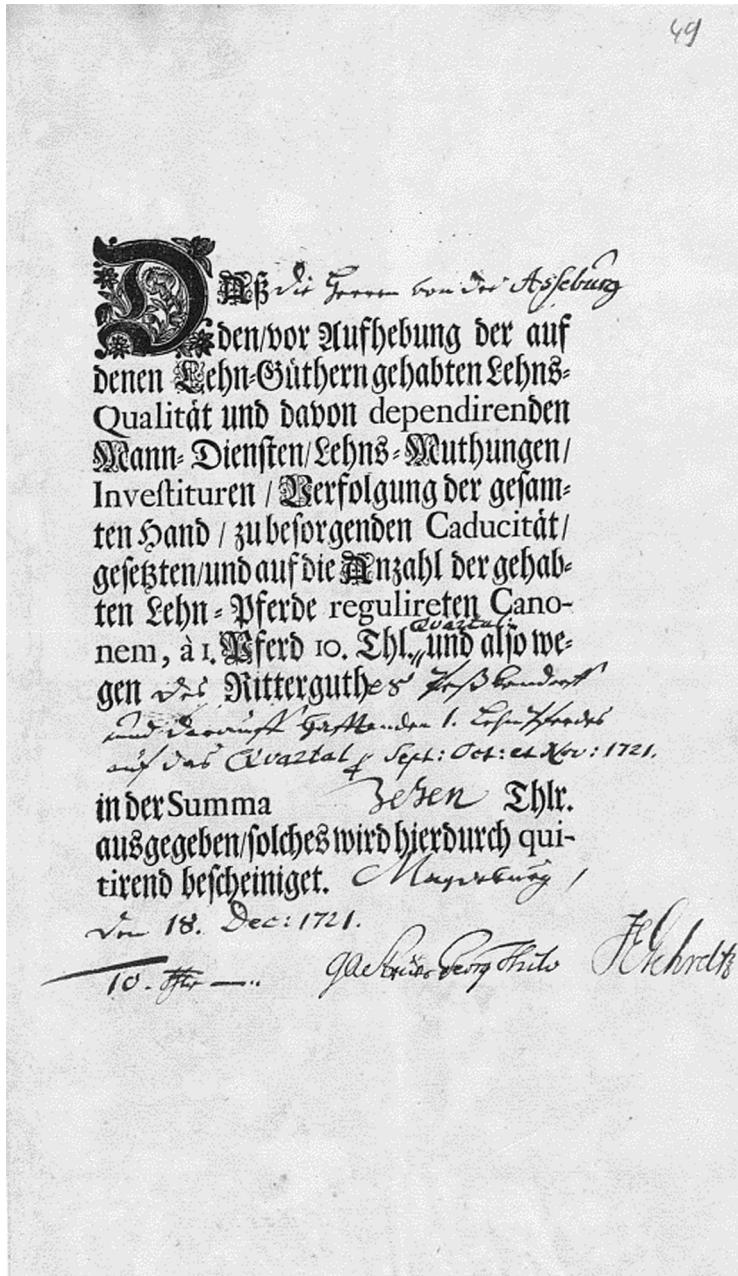 49
DAß die Herren von der Asseburg
den/vor Aufhebung der auf
denen Lehn-Güthern gehabten Lehns-
Qualität und davon dependirenden
Mann-Diensten/Lehns-Muthungen/
Investituren / Verfolgung der gesam-
ten Hand / zu besorgenden Caducität/
gesetzten/und auf die Anzahl der gehab-
ten Lehn-Pferde regulireten Cano-
Quartal.
nem, à 1. Pferd 10. Thl. und also we-
gen des Ritterguthes
und darauff hafftenden 1. Lehn Pferdes
auf das Quartal Sept: Oct: et Nov: 1721.
in der Summa Zehen Thlr.
ausgegeben/solches wird hierdurch qui-
tirend bescheiniget. Magdeburg /
den 18. Dec: 1721.
10. Thlr